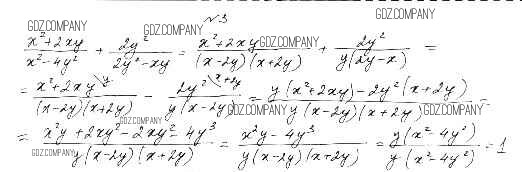 GDZ.COMPANY GDZ.COMPANY № 3 GDZ.COMPANY
(x² + 2xy)/(x² - 4y²) + 2y²/(2y² - xy) = (x² + 2xy)/((x - 2y)(x + 2y)) + 2y²/(y(2y - x)) = GDZ.COMPANY
= (x² + 2xy \y)/((x - 2y)(x + 2y)) - (2y² \x + 2y)/(y(x - 2y)) = (y(x² + 2xy) - 2y²(x + 2y))/(y(x - 2y)(x + 2y)) = GDZ.COMPANY GDZ.COMPANY GDZ.COMPANY
= (x²y + 2xy² - 2xy² - 4y³)/(y(x - 2y)(x + 2y)) = (x²y - 4y³)/(y(x - 2y)(x + 2y)) = y(x² - 4y²)/(y(x² - 4y²)) = 1 GDZ.COMPANY